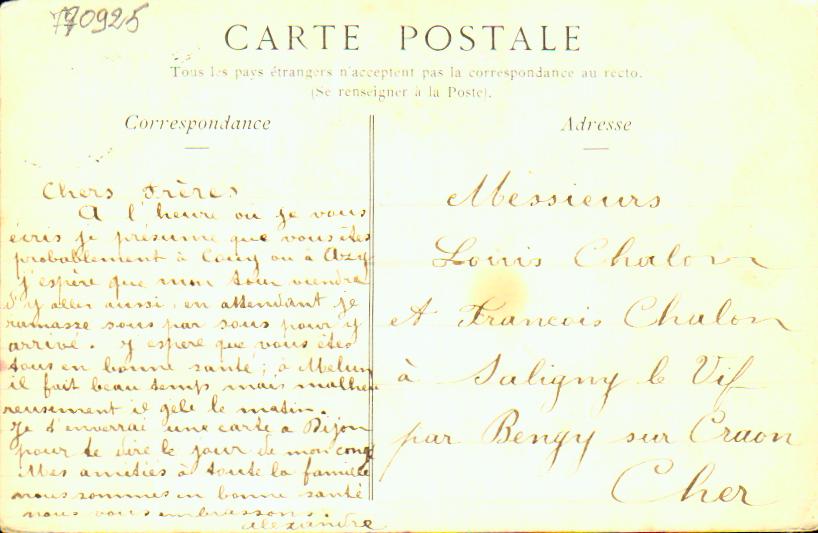 770925
CARTE POSTALE
Tous les pays étrangers n'acceptent pas la correspondance au recto.
(Se renseigner à la Poste).
Correspondance
Chers Frères
A l'heure où je vous
écris je présume que vous êtes
probablement à Couy ou à Azy
j'espère que mon tour viendra
d'y aller aussi, en attendant je
ramasse sous par sous pour y
arrivé. J'espère que vous êtes
tous en bonne santé; à Melun
il fait beau temps mais malheu
reusement il gèle le matin.
Je t'enverrai une carte a Dijon
pour te dire le jour de mon congé
Mes amitiés à toute la famille
nous sommes en bonne santé
nous vous embrassons.
alexandre
Adresse
Méssieurs
Louis Chalon
et Francois Chalon
à Saligny le Vif
par Bengy sur Craon
Cher